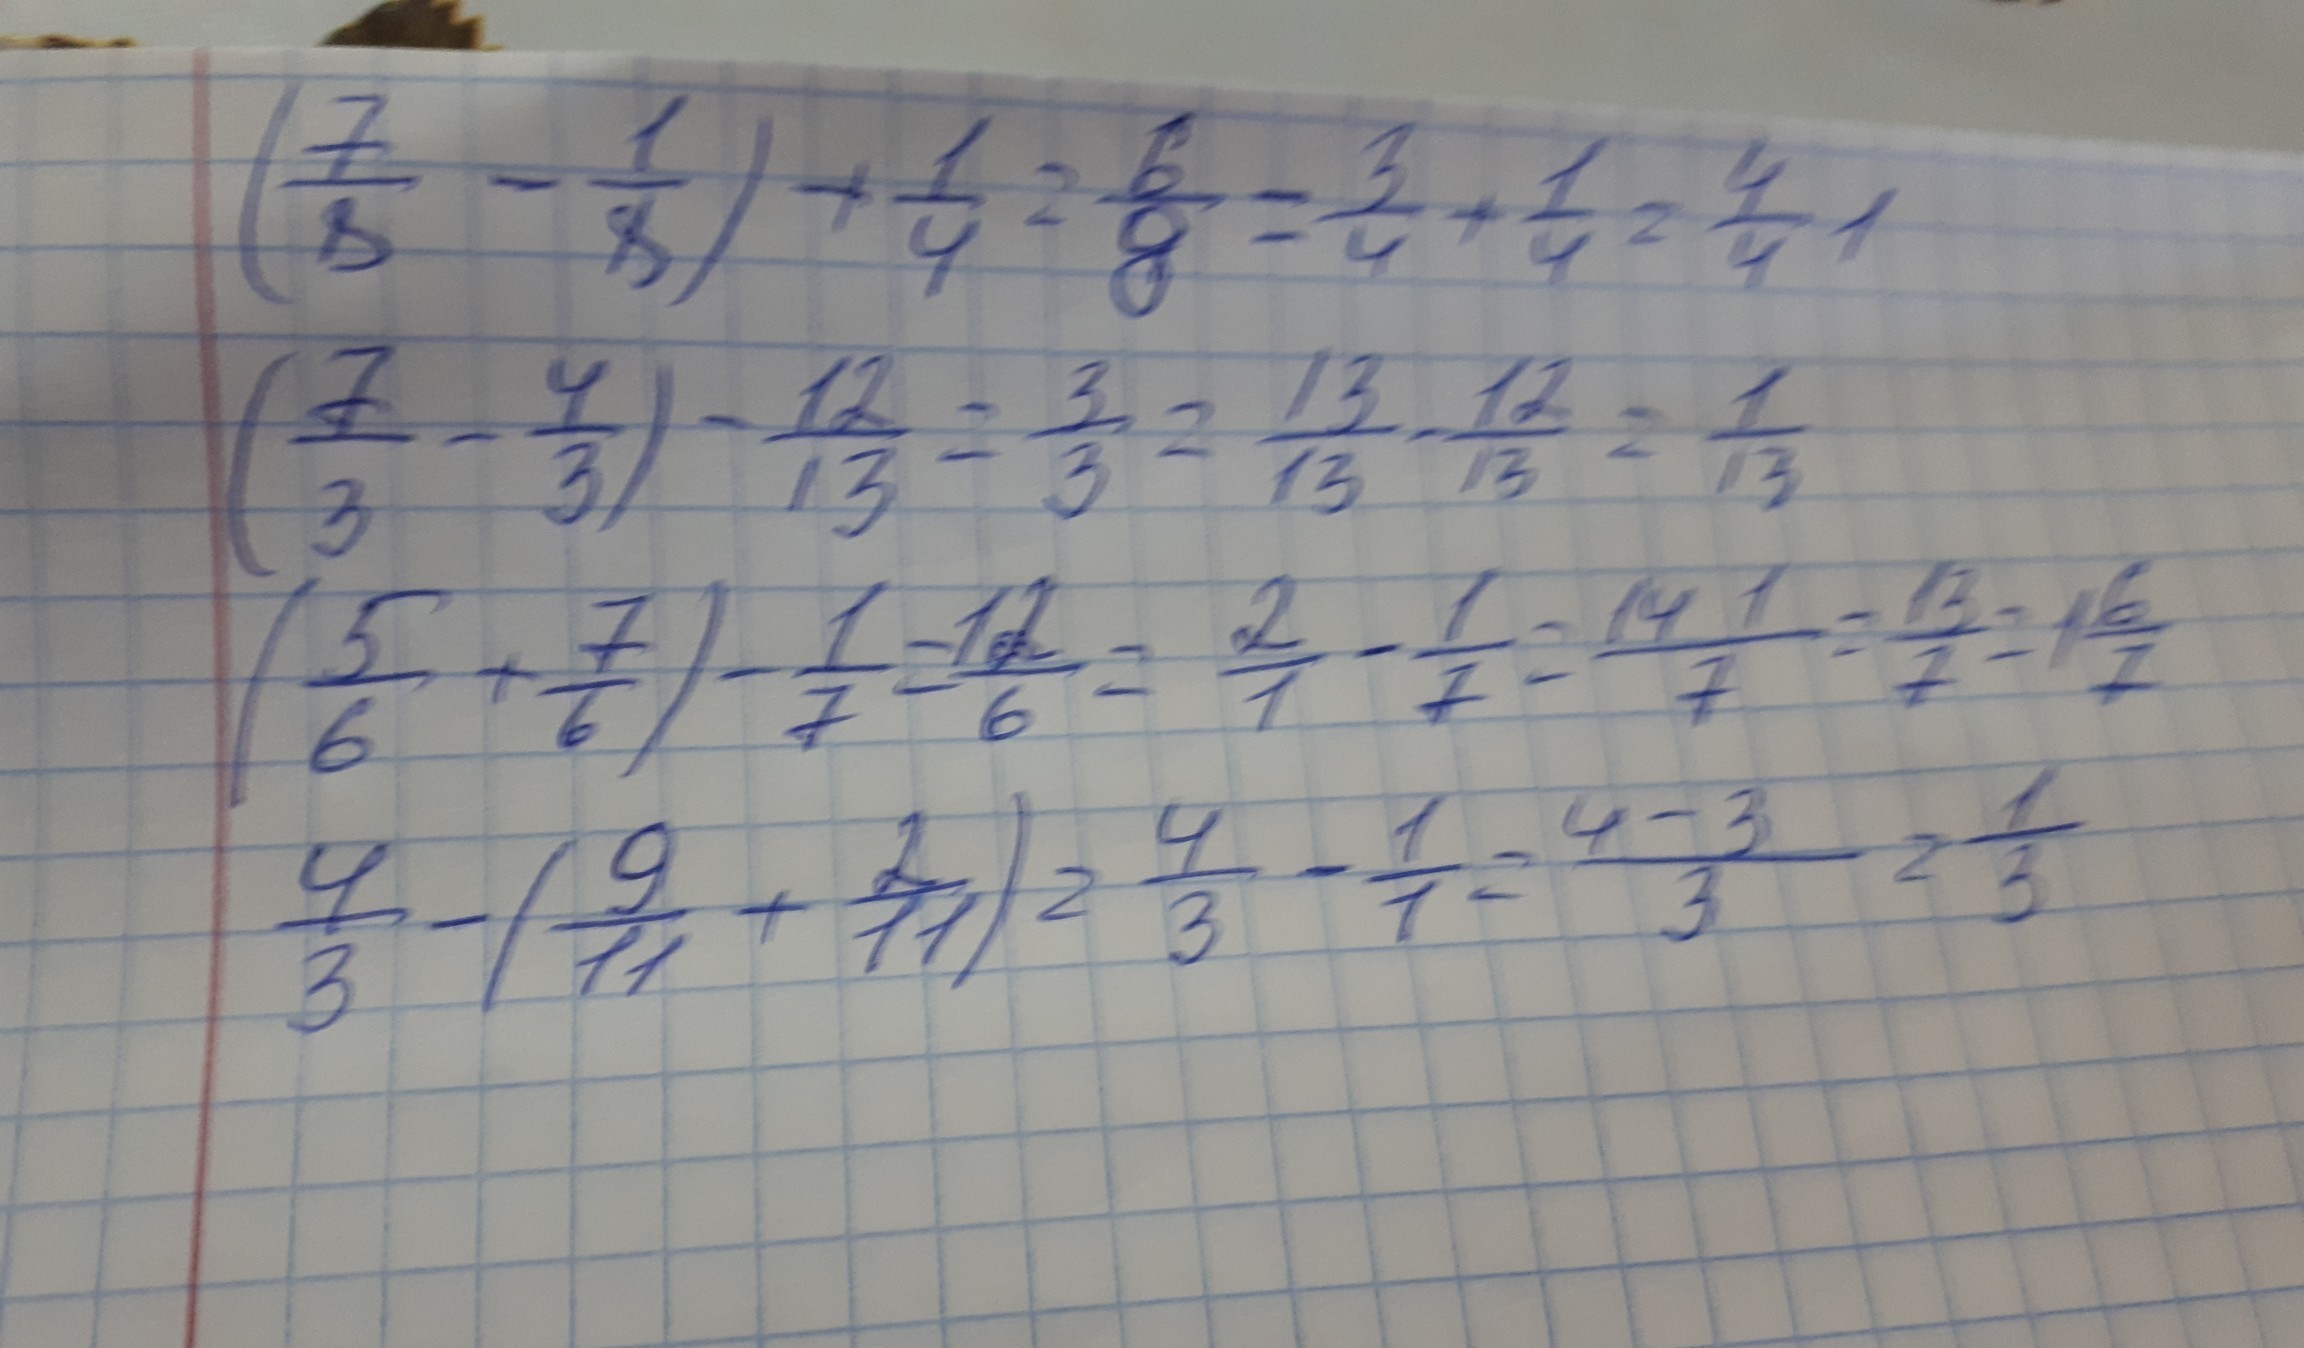 (7/8 - 1/8) + 1/4 = 6/8 = 3/4 + 1/4 = 4/4 1
(7/3 - 4/3) - 12/13 = 3/3 = 13/13 - 12/13 = 1/13
(5/6 + 7/6) - 1/7 = 12/6 = 2/1 - 1/7 = 14 1/7 = 13/7 = 1 6/7
4/3 - (9/11 + 2/11) = 4/3 - 1/1 = 4-3/3 = 1/3